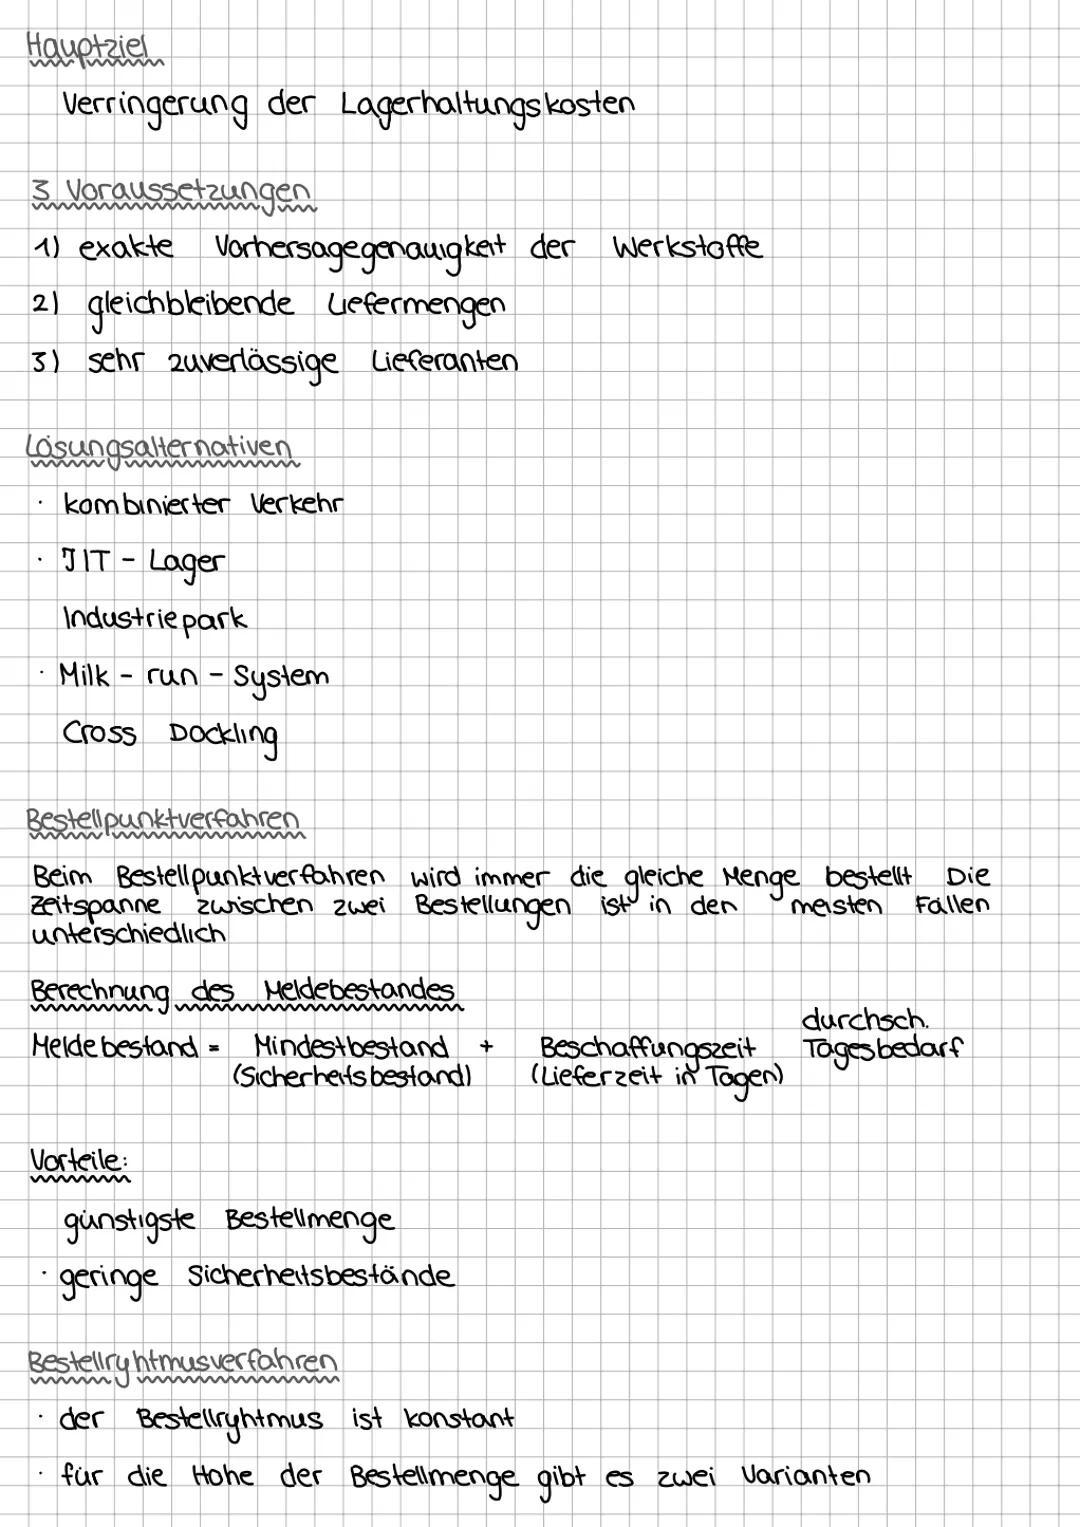 Hauptziel
Verringerung der Lagerhaltungskosten
3 Voraussetzungen
1) exakte Vorhersagegenauigkeit der Werkstoffe
2) gleichbleibende Liefermengen
3) sehr zuverlässige Lieferanten
Lösungsalternativen
· kombinierter Verkehr
· JIT - Lager
Industriepark
· Milk - run - System
Cross Dockling
Bestellpunktverfahren
Beim Bestellpunktverfahren wird immer die gleiche Menge bestellt Die
Zeitspanne zwischen zwei Bestellungen ist in den meisten Fällen
unterschiedlich
Berechnung des Meldebestandes
durchsch.
Meldebestand = Mindestbestand + Beschaffungszeit Tagesbedarf
(Sicherheitsbestand) (Lieferzeit in Tagen)
Vorteile:
günstigste Bestellmenge
· geringe Sicherheitsbestände
Bestellryhtmusverfahren
· der Bestellryhtmus ist konstant
· für die Höhe der Bestellmenge gibt es zwei Varianten